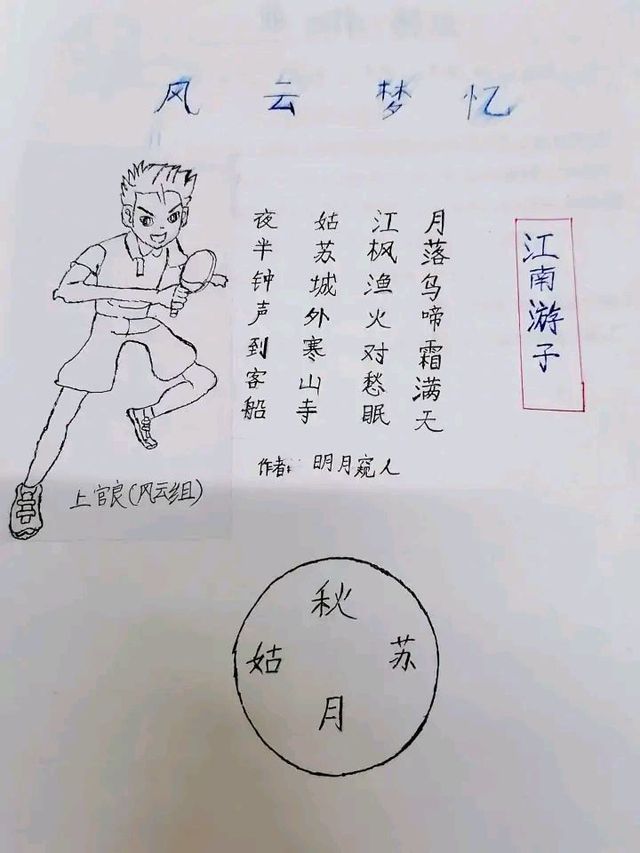 风云梦忆
江南游子
月落乌啼霜满天
江枫渔火对愁眠
姑苏城外寒山寺
夜半钟声到客船
作者：明月窥人
上官良(风云组)
秋
姑 苏
月